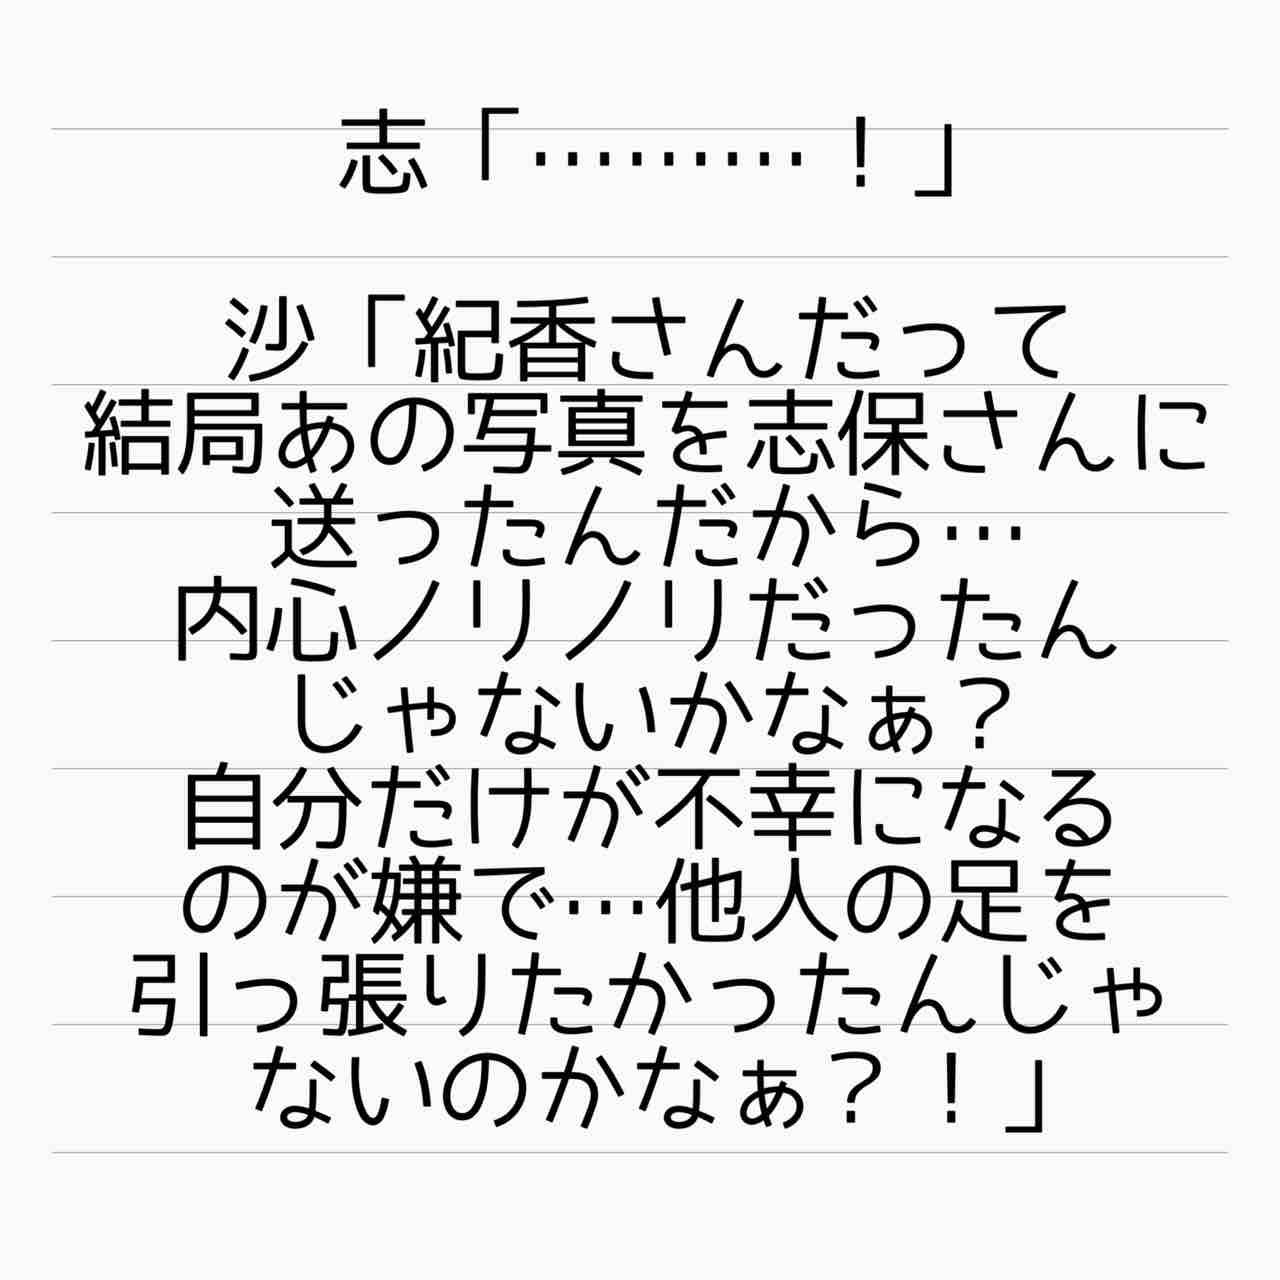 志「………！」
沙「紀香さんだって
結局あの写真を志保さんに
送ったんだから…
内心ノリノリだったん
じゃないかなぁ？
自分だけが不幸になる
のが嫌で…他人の足を
引っ張りたかったんじゃ
ないのかなぁ？！」